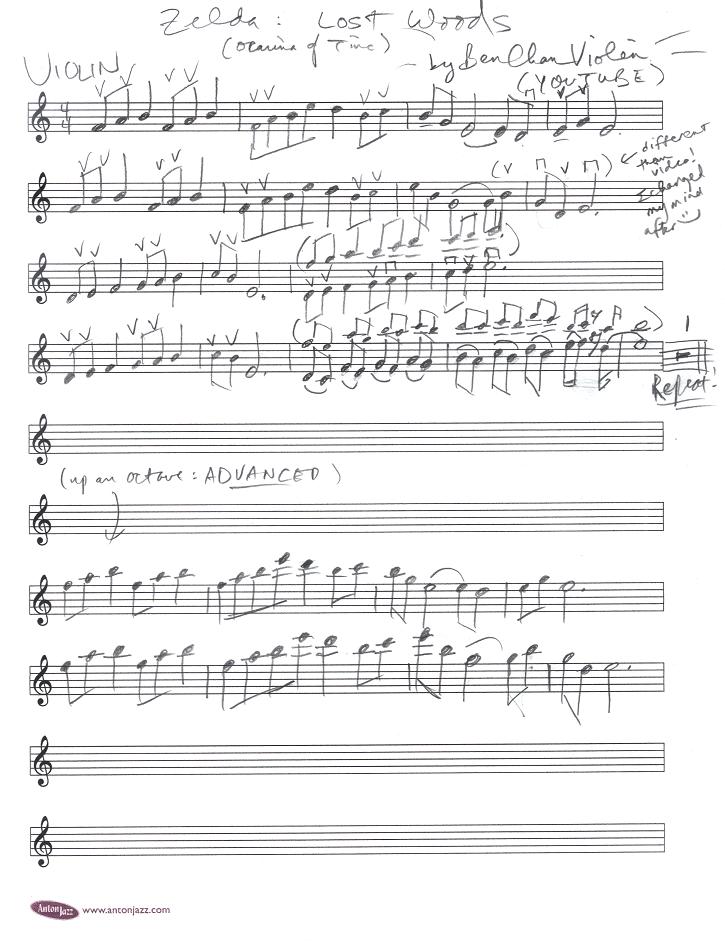 Zelda: Lost Woods
(Ocarina of Time)
VIOLIN
- by BenChanViolin -
(YOUTUBE)
4
4
different
than
video!
I changed
my mind
after :)
1
Repeat!
(up an octave: ADVANCED)
AntonJazz www.antonjazz.com